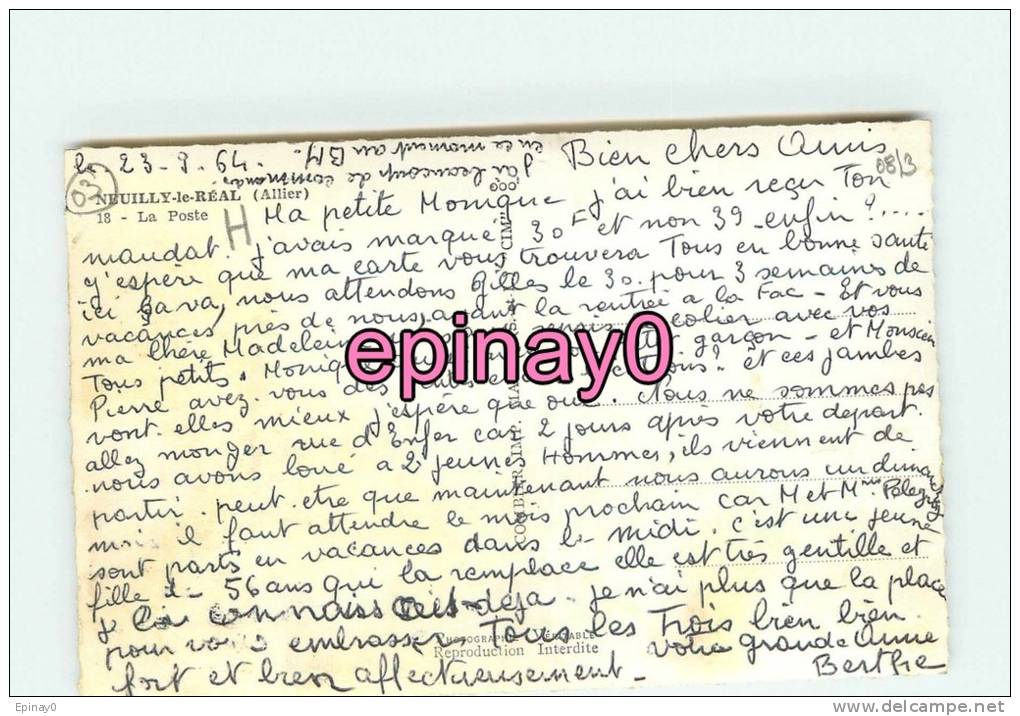 23-9-64.
J'ai beaucoup de commandes
en ce moment au BM.
Bien chers Amis
08/3
03
NEUILLY-le-RÉAL (Allier)
18 - La Poste
H
Ma petite Monique j'ai bien reçu Ton
mandat. j'avais marqué 30F et non 39 enfin?....
j'espère que ma carte vous trouvera Tous en bonne santé
ici ça va, nous attendons Gilles le 30. pour 3 semaines de
vacances près de nous, avant la rentrée a la Fac - Et vous
ma chère Madeleine écolier avec vos
Tous petits. Monique garçon - et Monsieur
Pierre avez-vous des et ces jambes
vont-elles mieux j'espère que oui. Nous ne sommes pas
allez manger rue d'Enfer car 2 jours après votre depart.
nous avons loué a 2 jeunes Hommes, ils viennent de
partir. peut-etre que maintenant nous aurons un dimanche
mais il faut attendre le mois prochain car M et Mme
sont partis en vacances dans le midi. c'est une jeune
fille de 56 ans qui la remplace elle est très gentille et
je la connaissais deja - je n'ai plus que la place
pour vous embrasser Tous les Trois bien bien
fort et bien affectueusement -
votre grande Anne
Berthe
PHOTOGRAPHIE VÉRITABLE
Reproduction Interdite
COMBIER IMP. MACON
"CIM"
epinay0
Epinay0
www.delcampe.net